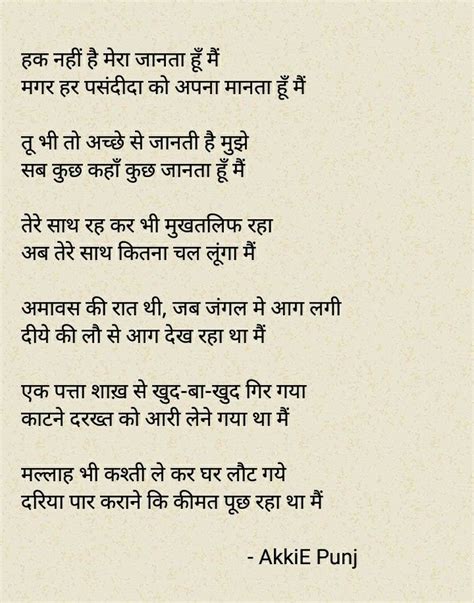 हक नहीं है मेरा जानता हूँ मैं
मगर हर पसंदीदा को अपना मानता हूँ मैं
तू भी तो अच्छे से जानती है मुझे
सब कुछ कहाँ कुछ जानता हूँ मैं
तेरे साथ रह कर भी मुखतलिफ रहा
अब तेरे साथ कितना चल लूंगा मैं
अमावस की रात थी, जब जंगल मे आग लगी
दीये की लौ से आग देख रहा था मैं
एक पत्ता शाख़ से खुद-बा-खुद गिर गया
काटने दरख्त को आरी लेने गया था मैं
मल्लाह भी कश्ती ले कर घर लौट गये
दरिया पार कराने कि कीमत पूछ रहा था मैं
- AkkiE Punj